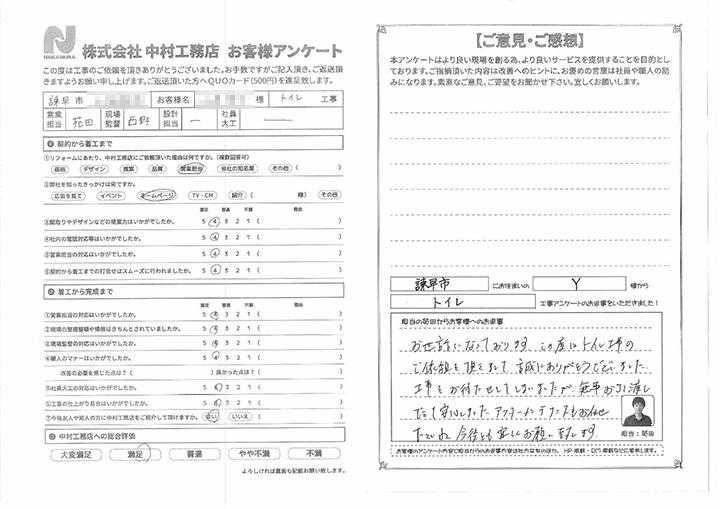 NAKAMURA
株式会社 中村工務店 お客様アンケート
この度は工事のご依頼を頂きありがとうございました。お手数ですがご記入頂き、ご返送頂
きますようお願い申し上げます。ご返送頂いた方へQUOカード(500円)を進呈致します。
諫早市 お客様名 様 トイレ 工事
営業担当 苑田 現場監督 西野 設計担当 ー 社員大工 ー
❶ 契約から着工まで
①リフォームにあたり、中村工務店にご依頼頂いた理由は何ですか。(複数回答可)
価格 デザイン 提案 品質 営業担当 会社の知名度 その他 ( )
②弊社を知ったきっかけは何ですか。
広告を見て イベント ホームページ TV・CM 紹介 ( 様) その他
満足 普通 不満 理由
③間取りやデザインなどの提案力はいかがでしたか。 5 4 3 2 1 ( )
④社内の電話対応等はいかがでしたか。 5 4 3 2 1 ( )
⑤営業担当の対応はいかがでしたか。 5 4 3 2 1 ( )
⑥契約から着工までの打合せはスムーズに行われましたか。 5 4 3 2 1 ( )
❷ 着工から完成まで
満足 普通 不満 理由
①営業担当の対応はいかがでしたか。 5 4 3 2 1 ( )
②現場の整理整頓や掃除はきちんとされていましたか。 5 4 3 2 1 ( )
③現場監督の対応はいかがでしたか。 5 4 3 2 1 ( )
④職人のマナーはいかがでしたか。 5 4 3 2 1 ( )
改善の必要を感じた点は?( ) 良かった点は?( )
⑤社員大工の対応はいかがでしたか。 5 4 3 2 1 ( )
⑥工事の仕上がり具合はいかがでしたか。 5 4 3 2 1 ( )
⑦今後友人や知人の方に中村工務店をご紹介して頂けますか。 はい いいえ ( )
❸ 中村工務店への総合評価
大変満足 満足 普通 やや不満 不満
よろしければ裏面も記載お願い致します。
【ご意見・ご感想】
本アンケートはより良い現場を創る為、より良いサービスを提供することを目的とし
ております。ご指摘頂いた内容は改善へのヒントに、お褒めの言葉は社員や職人の励
みになります。素直なご意見、ご要望をお聞かせ下さい。宜しくお願いします。
諫早市 にお住まいの Y 様から
トイレ 工事アンケートのお返事をいただきました!
担当の苑田からお客様へのお返事
お世話になっております。この度はトイレ工事の
ご依頼を頂きまして、誠にありがとうございました。
工事をお待たせしてしまいましたが、無事お引き渡し
できて良かったです。アフターメンテナンスもお任せ
下さいね。今後とも宜しくお願い致します。
担当:苑田
お客様のアンケート内容と担当からのお返事内容は社内共有のほか、HP掲載・DM掲載などに使用します。